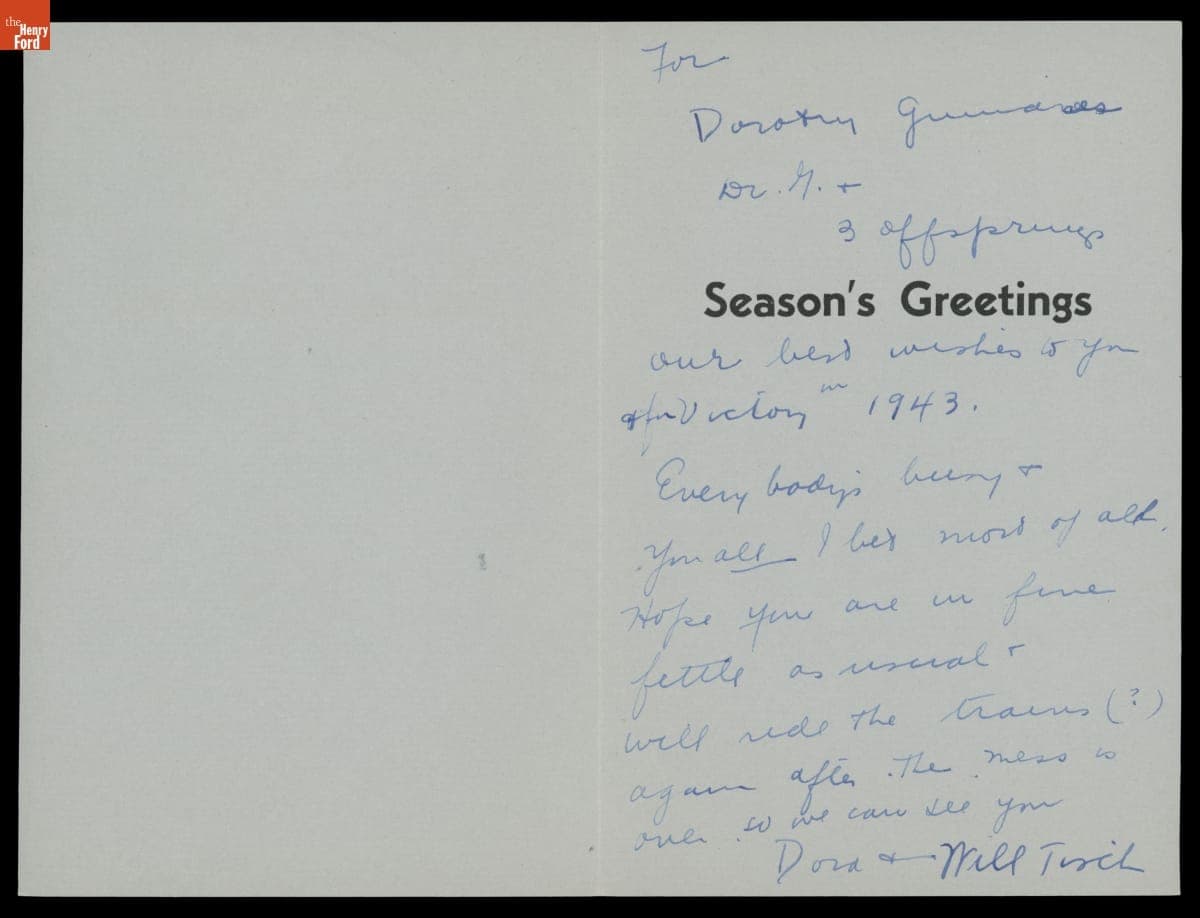 the
Henry
Ford
For
Dorothy
Dr. G. +
3 offsprings
Season's Greetings
our best wishes to you
& for Victory in 1943.
Everybody's busy +
You all I bet most of all.
Hope you are in fine
fettle as usual +
will ride the trains (?)
again after the mess is
over so we can see you
Dora + Will